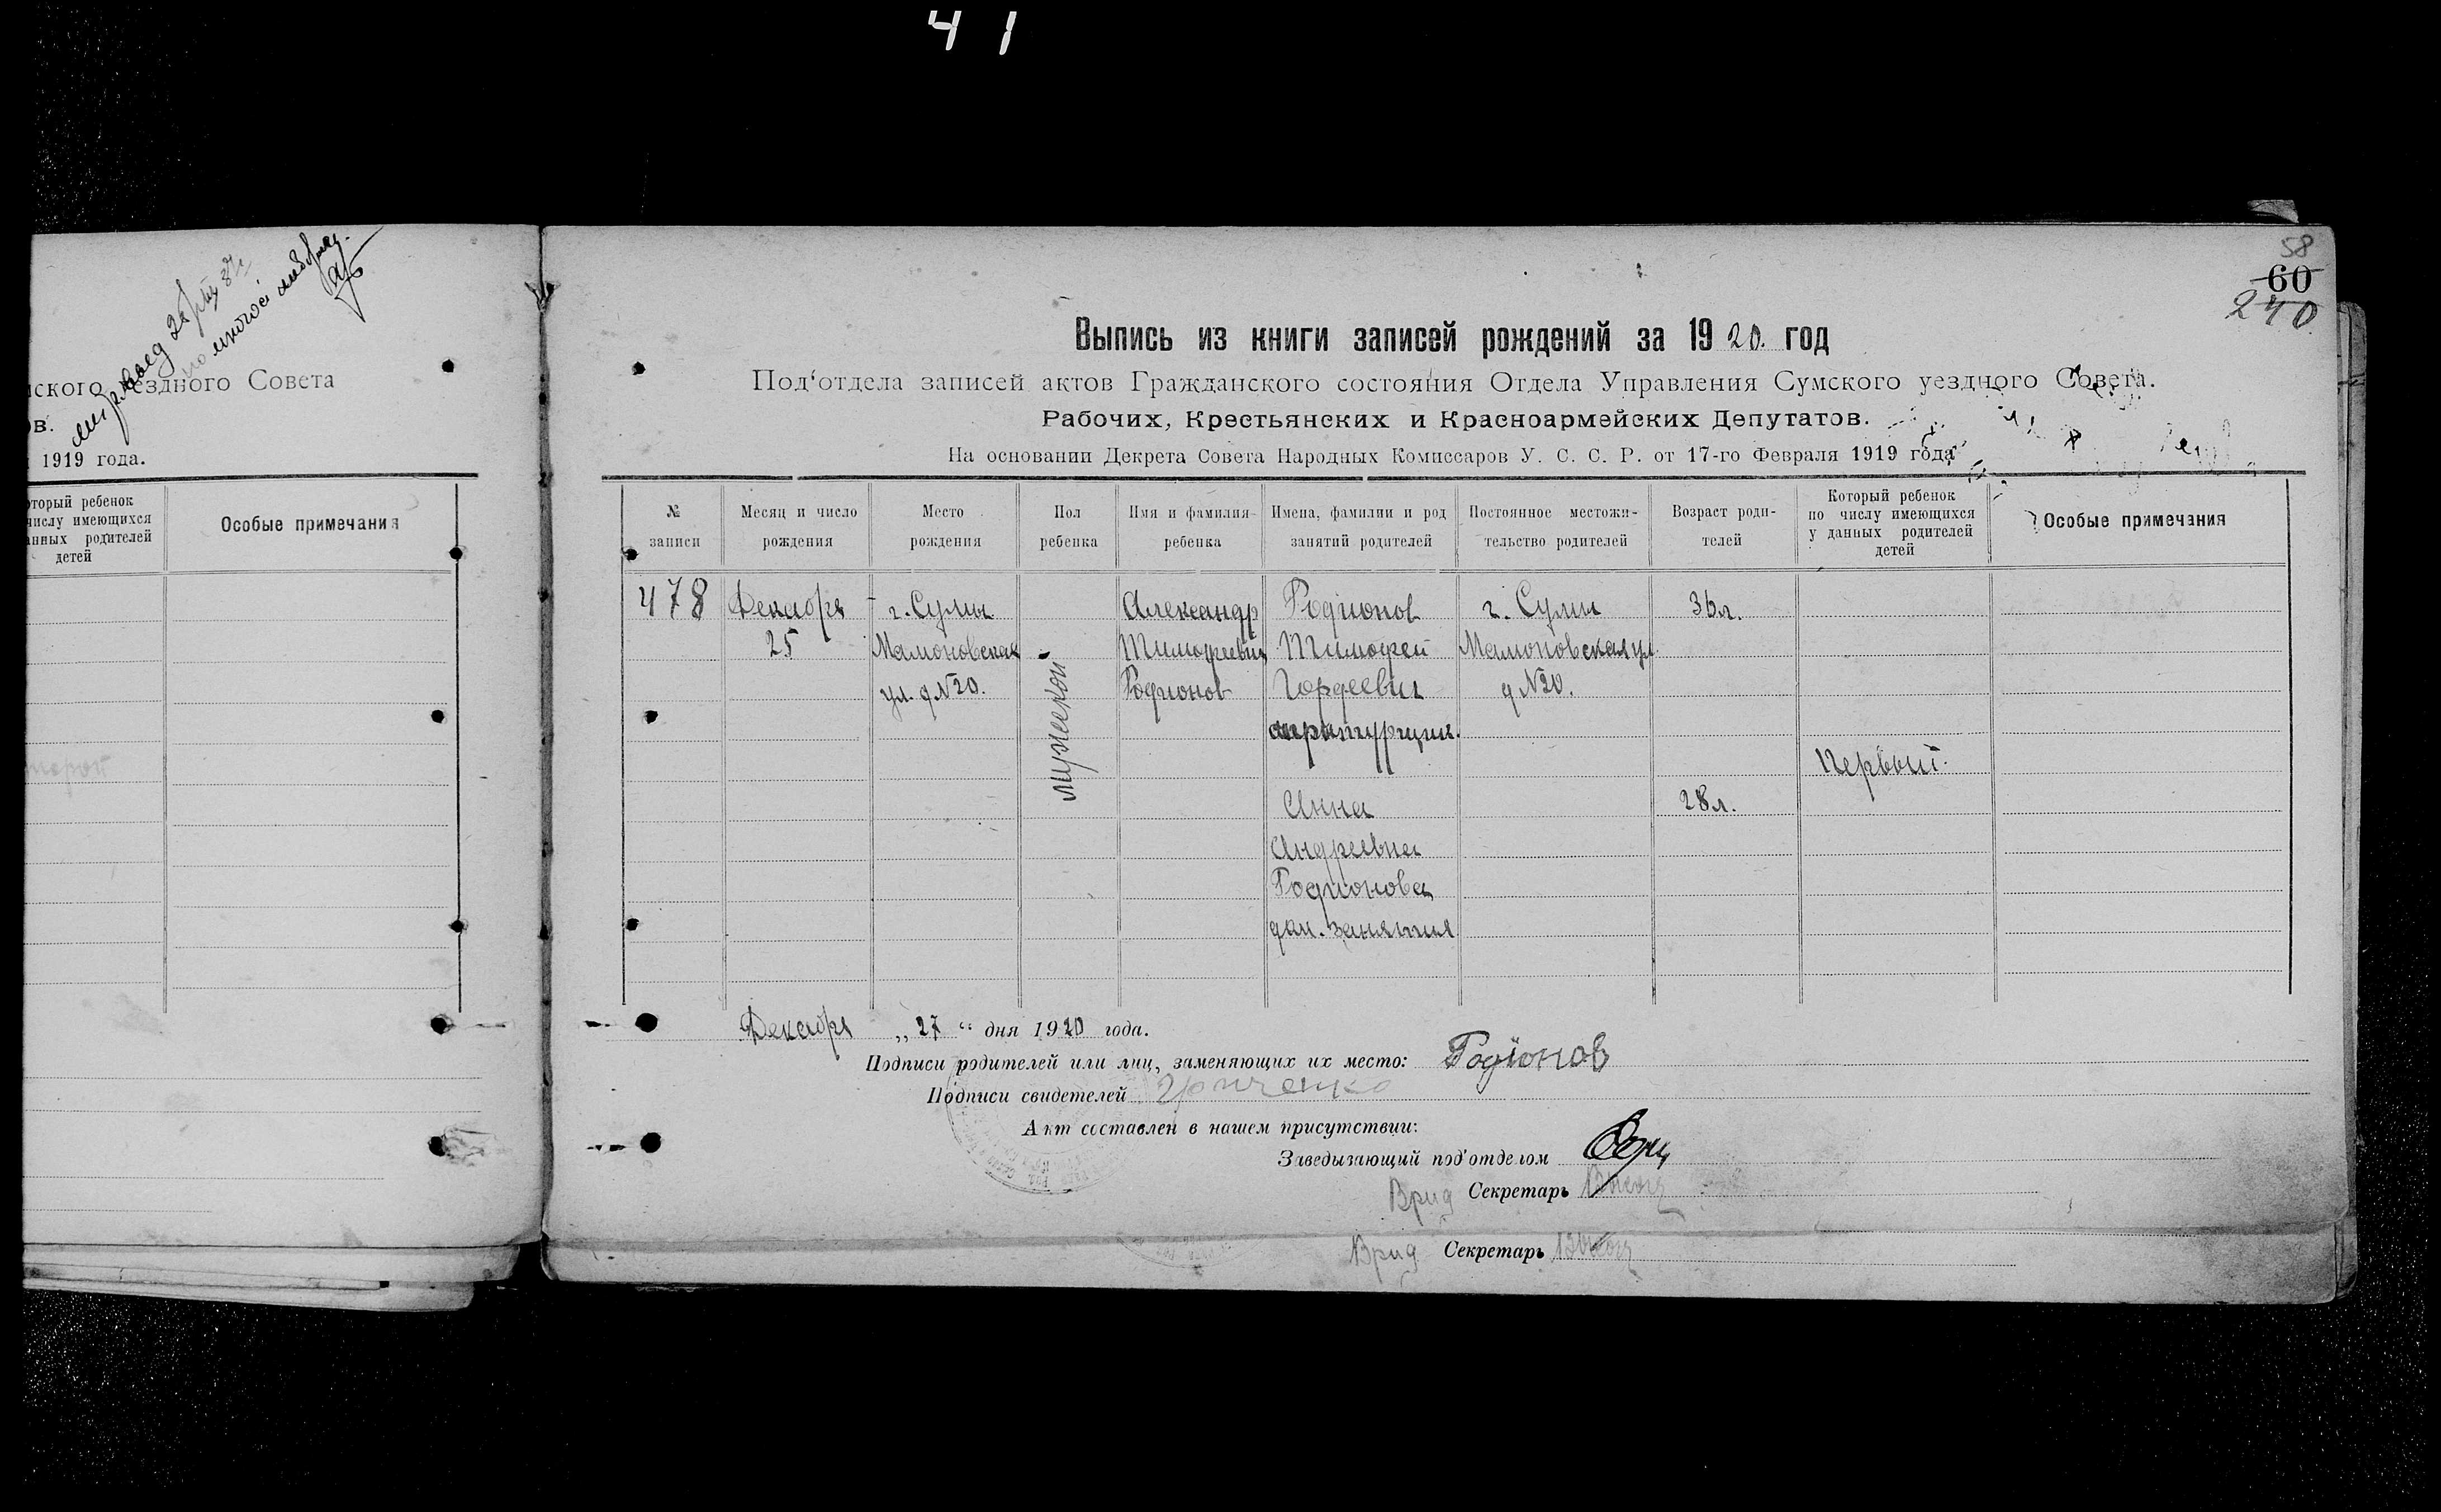 4 1
58
60
240
ского уездного Совета
ов.
1919 года.
оторый ребенок
числу имеющихся
анных родителей
детей
Особые примечания
Выпись из книги записей рождений за 1920. год
Под‘отдела записей актов Гражданского состояния Отдела Управления Сумского уездного Совета.
Рабочих, Крестьянских и Красноармейских Депутатов.
На основании Декрета Совета Народных Комиссаров У. С. С. Р. от 17-го Февраля 1919 года
№
записи
Месяц и число
рождения
Место
рождения
Пол
ребенка
Имя и фамилия
ребенка
Имена, фамилии и род
занятий родителей
Постоянное местожи-
тельство родителей
Возраст роди-
телей
Который ребенок
по числу имеющихся
у данных родителей
детей
Особые примечания
478
Декабря
25
г. Сумы
Мамоновская
ул. д N20.
мужской
Александр
Тимофеевич
Родионов
Родионов
Тимофей
Гордеевич
Анна
Андреевна
Родионова
дом. занятия
г. Сумы
Мамоновская ул
д N20.
36л.
28л.
Первый.
Декабря „ 27 “ дня 1920 года.
Подписи родителей или лиц, заменяющих их место: Родіонов
Подписи свидетелей
Акт составлен в нашем присутствии:
Заведызающий под‘отделом
Врид Секретарь
Врид Секретарь